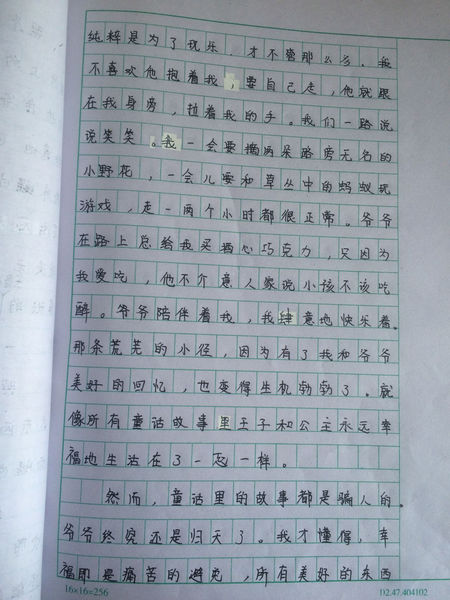 纯粹是为了玩乐，才不管那么多。我
不喜欢他抱着我，要自己走，他就跟
在我身旁，拉着我的手。我们一路说
说笑笑。我一会要摘两朵路旁无名的
小野花，一会儿要和草丛中的蚂蚁玩
游戏，走一两个小时都很正常。爷爷
在路上总给我买酒心巧克力，只因为
我爱吃，他不介意人家说小孩不该吃
醉。爷爷陪伴着我，我肆意地快乐着。
那条荒芜的小径，因为有了我和爷爷
美好的回忆，也变得生机勃勃了。就
像所有童话故事里王子和公主永远幸
福地生活在了一起一样。
然而，童话里的故事都是骗人的。
爷爷终究还是归天了。我才懂得，幸
福即是痛苦的避免，所有美好的东西
16×16=256
D2.47.404102